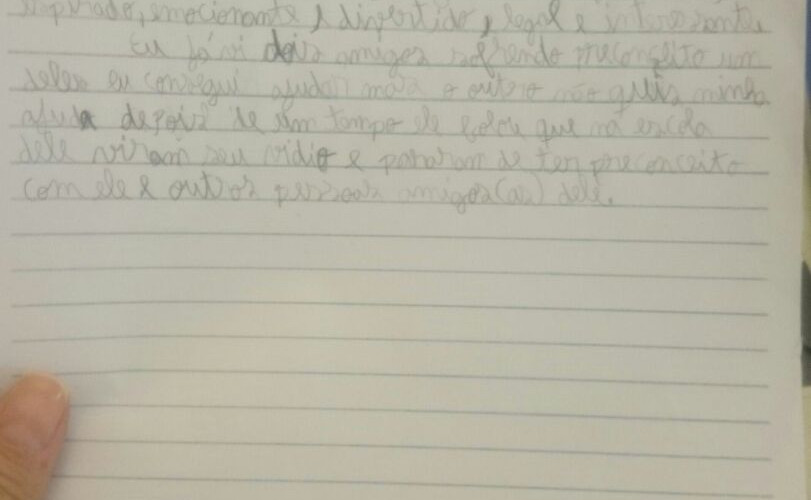 inspirado, emocionante, divertido, legal e interessante.
Eu já vi dois amigos sofrendo preconceito um
deles eu consegui ajudar mas o outro não quis minha
ajuda depois de um tempo ele falou que na escola
dele viram seu vidio e pararam de ter preconceito
com ele e outros pessoas amigos(as) dele.